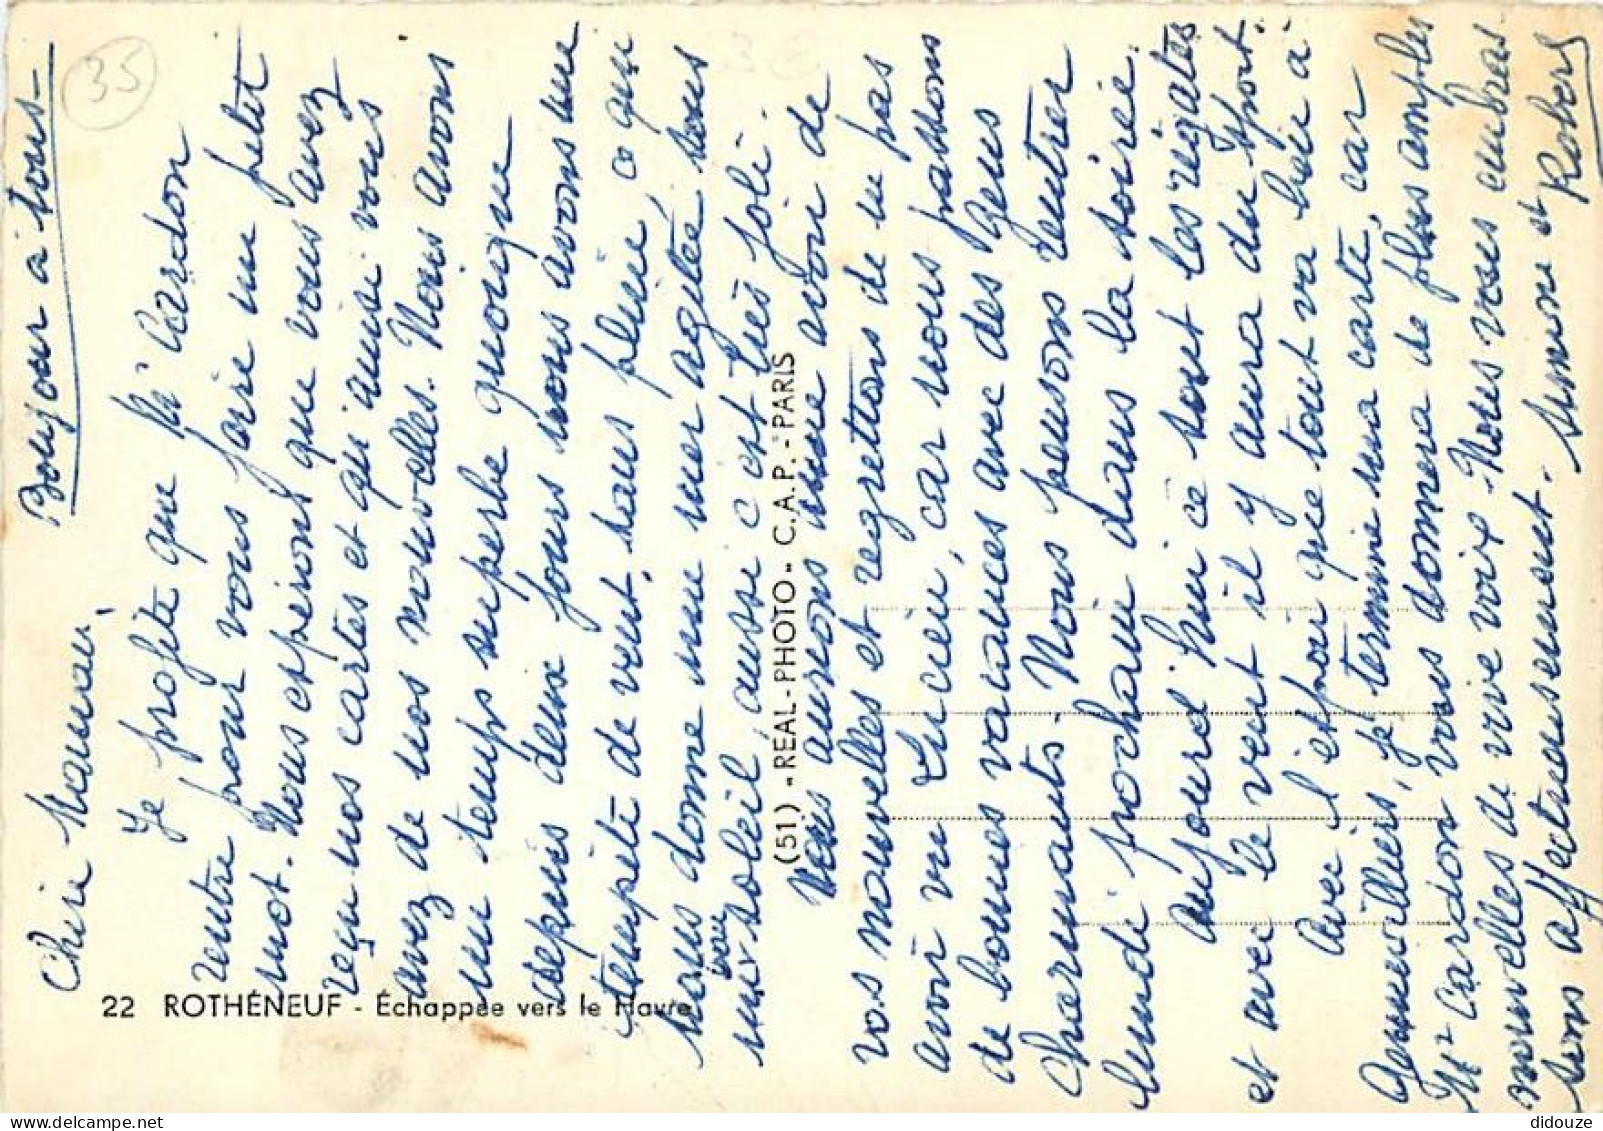 Bonjour à tous -
35
Chère Maman,
Je profite que Mr Cardon
rentre pour vous faire un petit
mot. Nous espérons que vous avez
reçu nos cartes et qu'ainsi vous
avez de nos nouvelles. Nous avons
un temps superbe quoique
depuis deux jours nous avons une
tempête de vent, sans pluie, ce qui
nous donne une mer agitée sous
un soleil, aussi c'est très joli.
Nous aurons une avoir de
vos nouvelles et regrettons de n pas
avoir vu Lucien, car nous passons
de bonnes vacances avec des gens
charmants. Nous pensons rentrer
lundi prochain dans la soirée.
Aujourd'hui ce sont les régates
et avec le vent il y aura du sport.
Avec l'espoir que tout va bien à
Gennevilliers, je termine ma carte, car
Mr Cardon vous donnera de plus amples
nouvelles de vive voix. Nous vous embras
sons affectueusement. Simone et Robert
22 ROTHÉNEUF - Échappée vers le Havre
(51) - REAL-PHOTO - C.A.P. - PARIS
delcampe.net
didouze